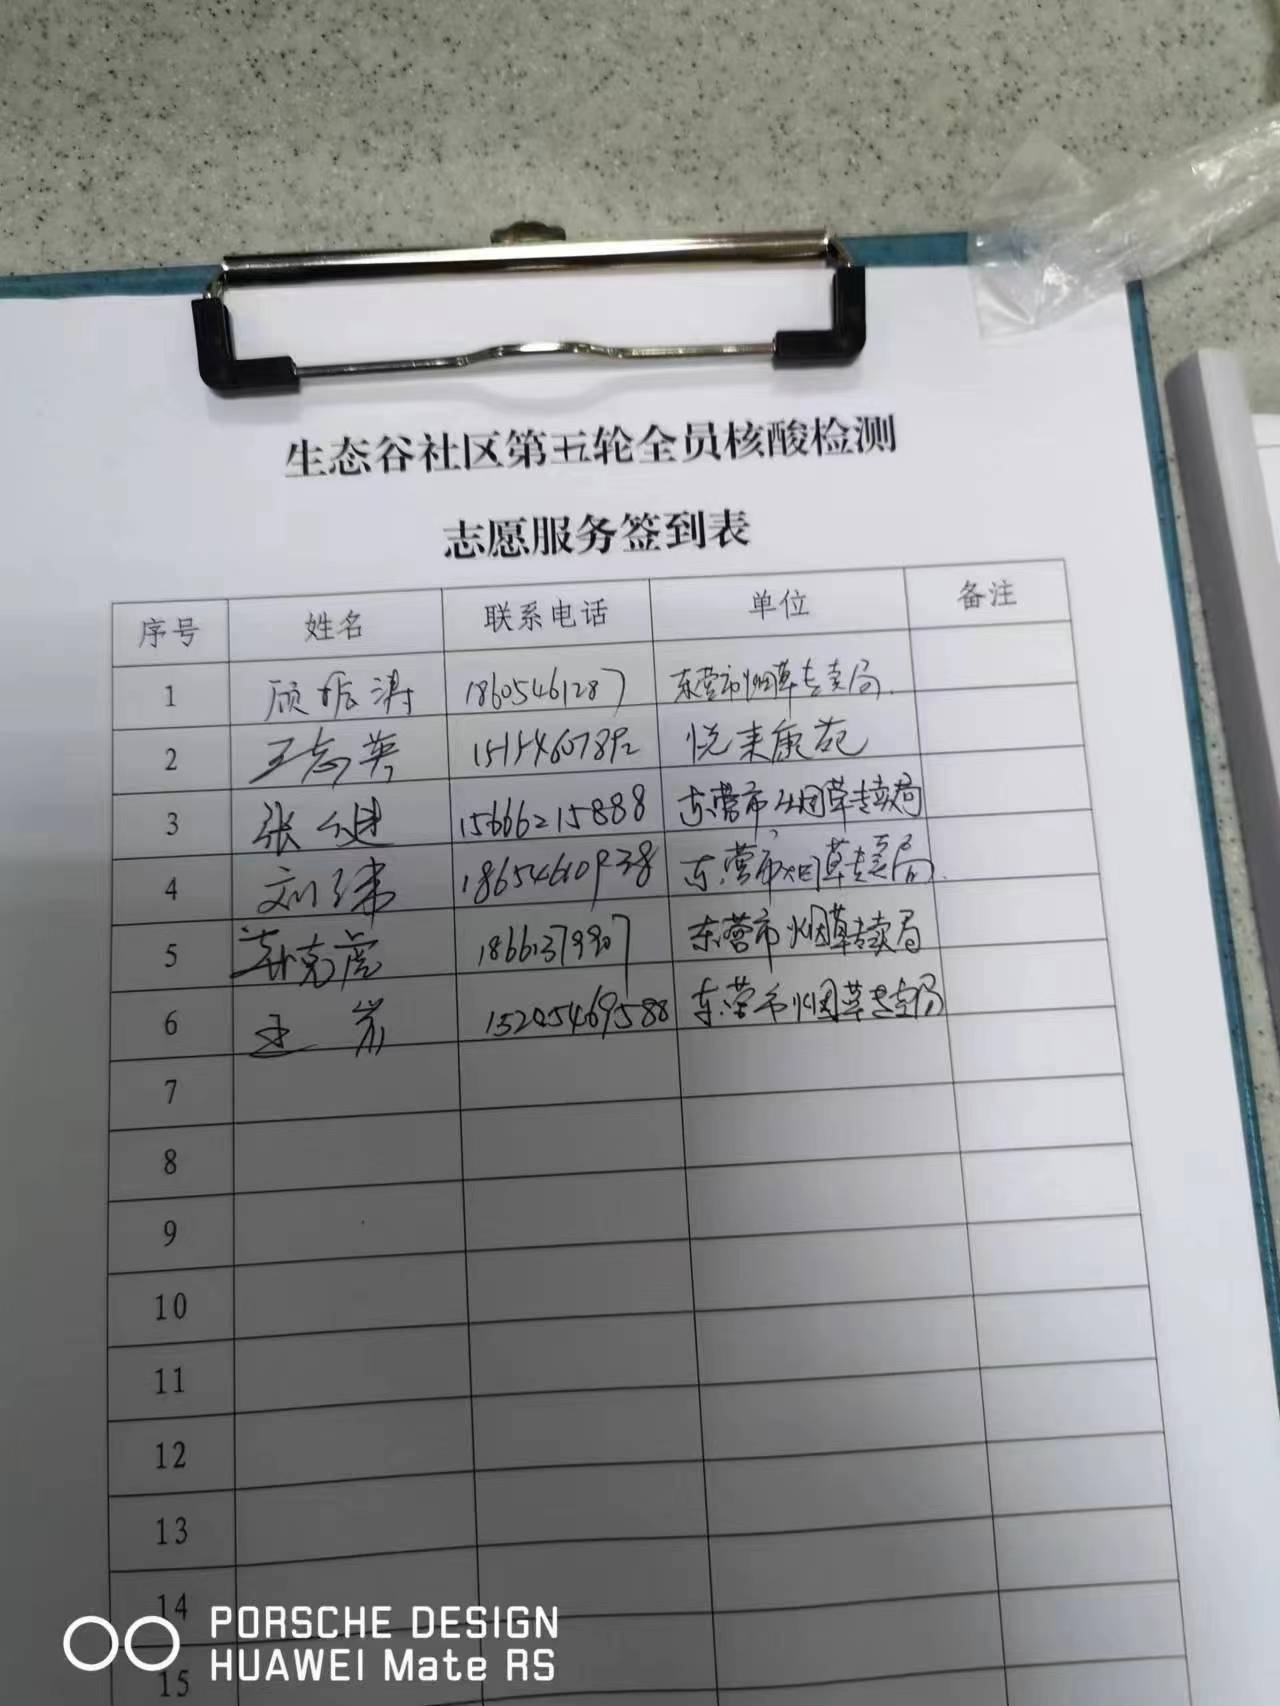 生态谷社区第五轮全员核酸检测
志愿服务签到表
序号 姓名 联系电话 单位 备注
1 顾振涛 18605461287 东营市烟草专卖局.
2 王志英 15154607892 悦来康苑
3 张健 15666215888 东营市烟草专卖局
4 刘伟 18654610938 东营市烟草专卖局.
5 克虎 东营市烟草专卖局
6 王岩 15205469588 东营市烟草专卖局
7
8
9
10
11
12
13
14
15
PORSCHE DESIGN
HUAWEI Mate RS